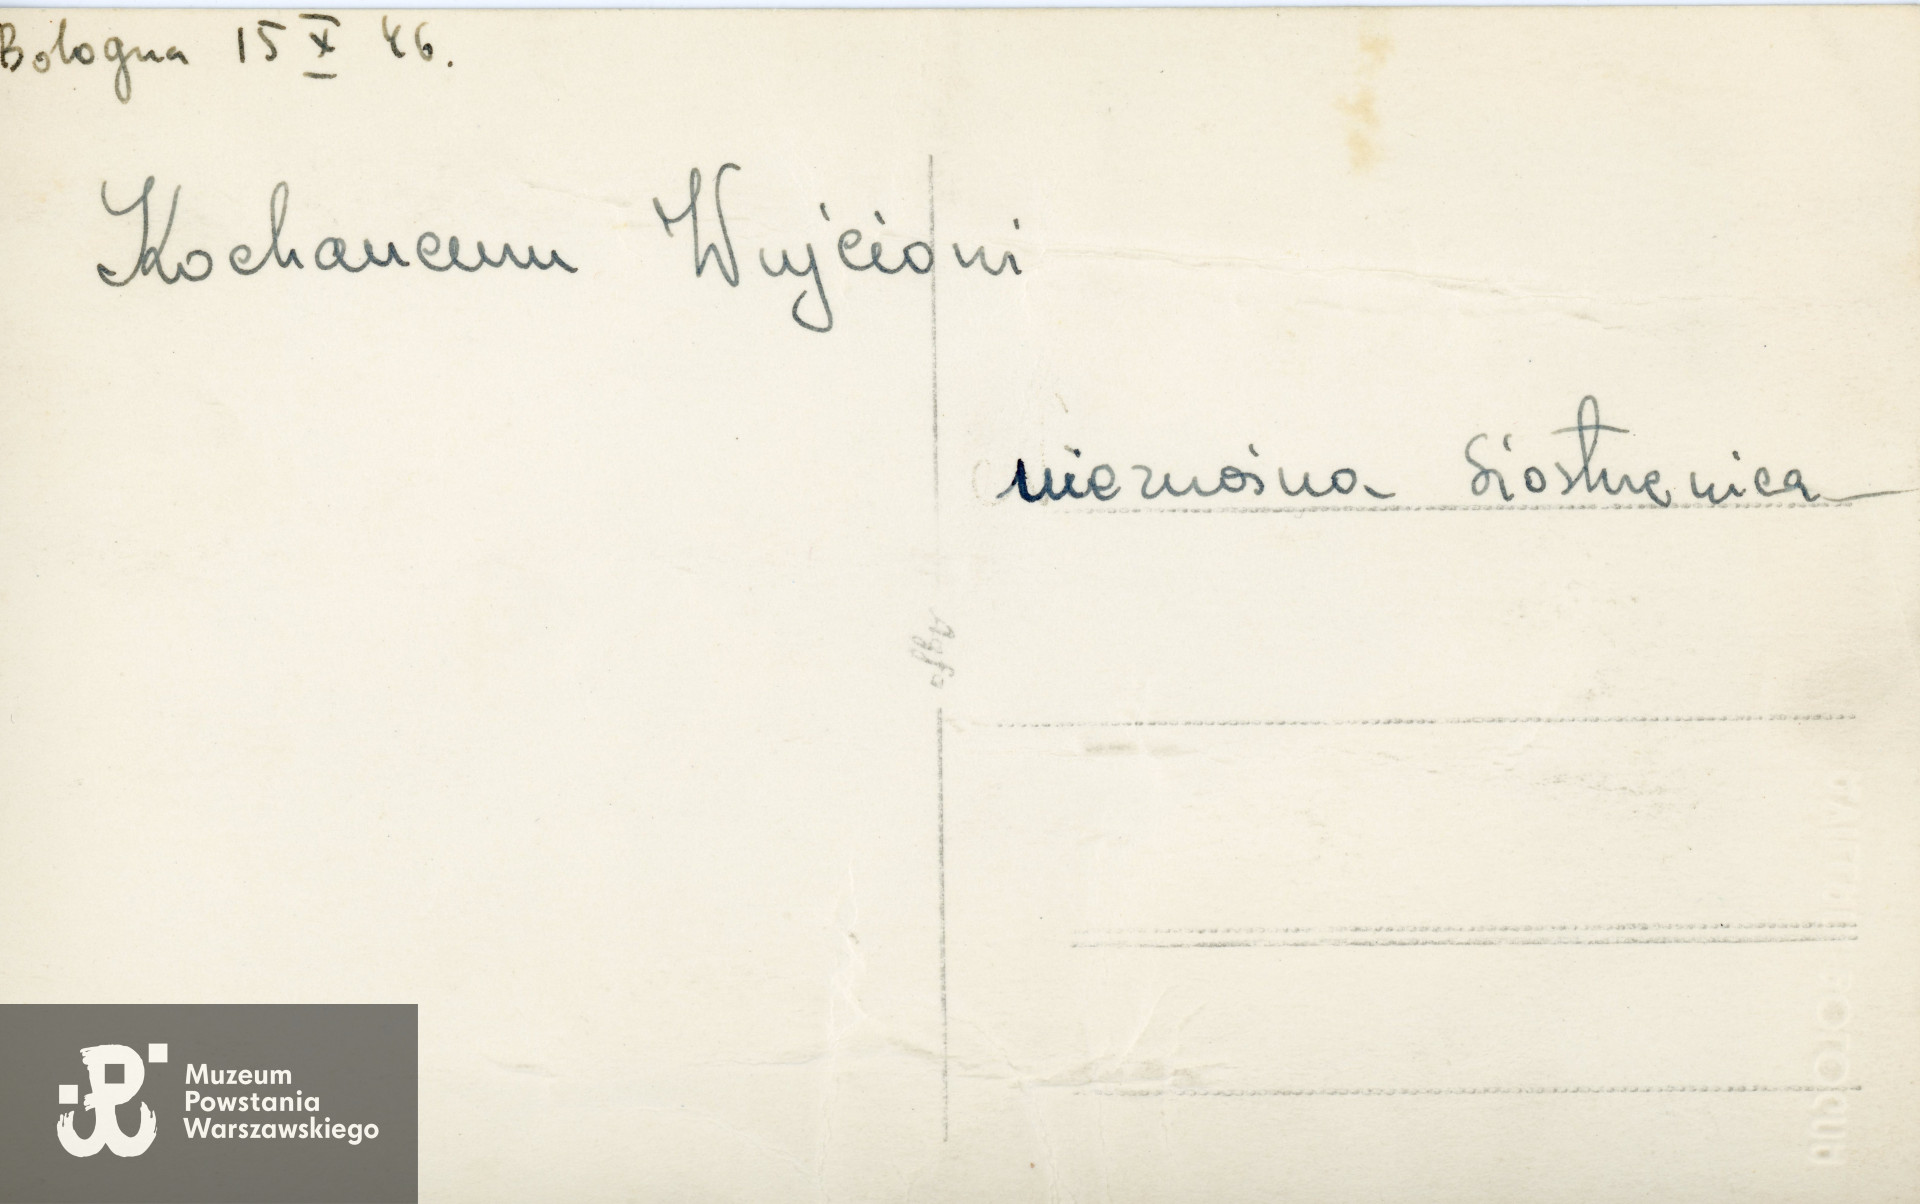 Bologna 15 X 46.
Kochanemu Wujciowi
nieznośna Siostrzenica
Agfa
Muzeum
Powstania
Warszawskiego